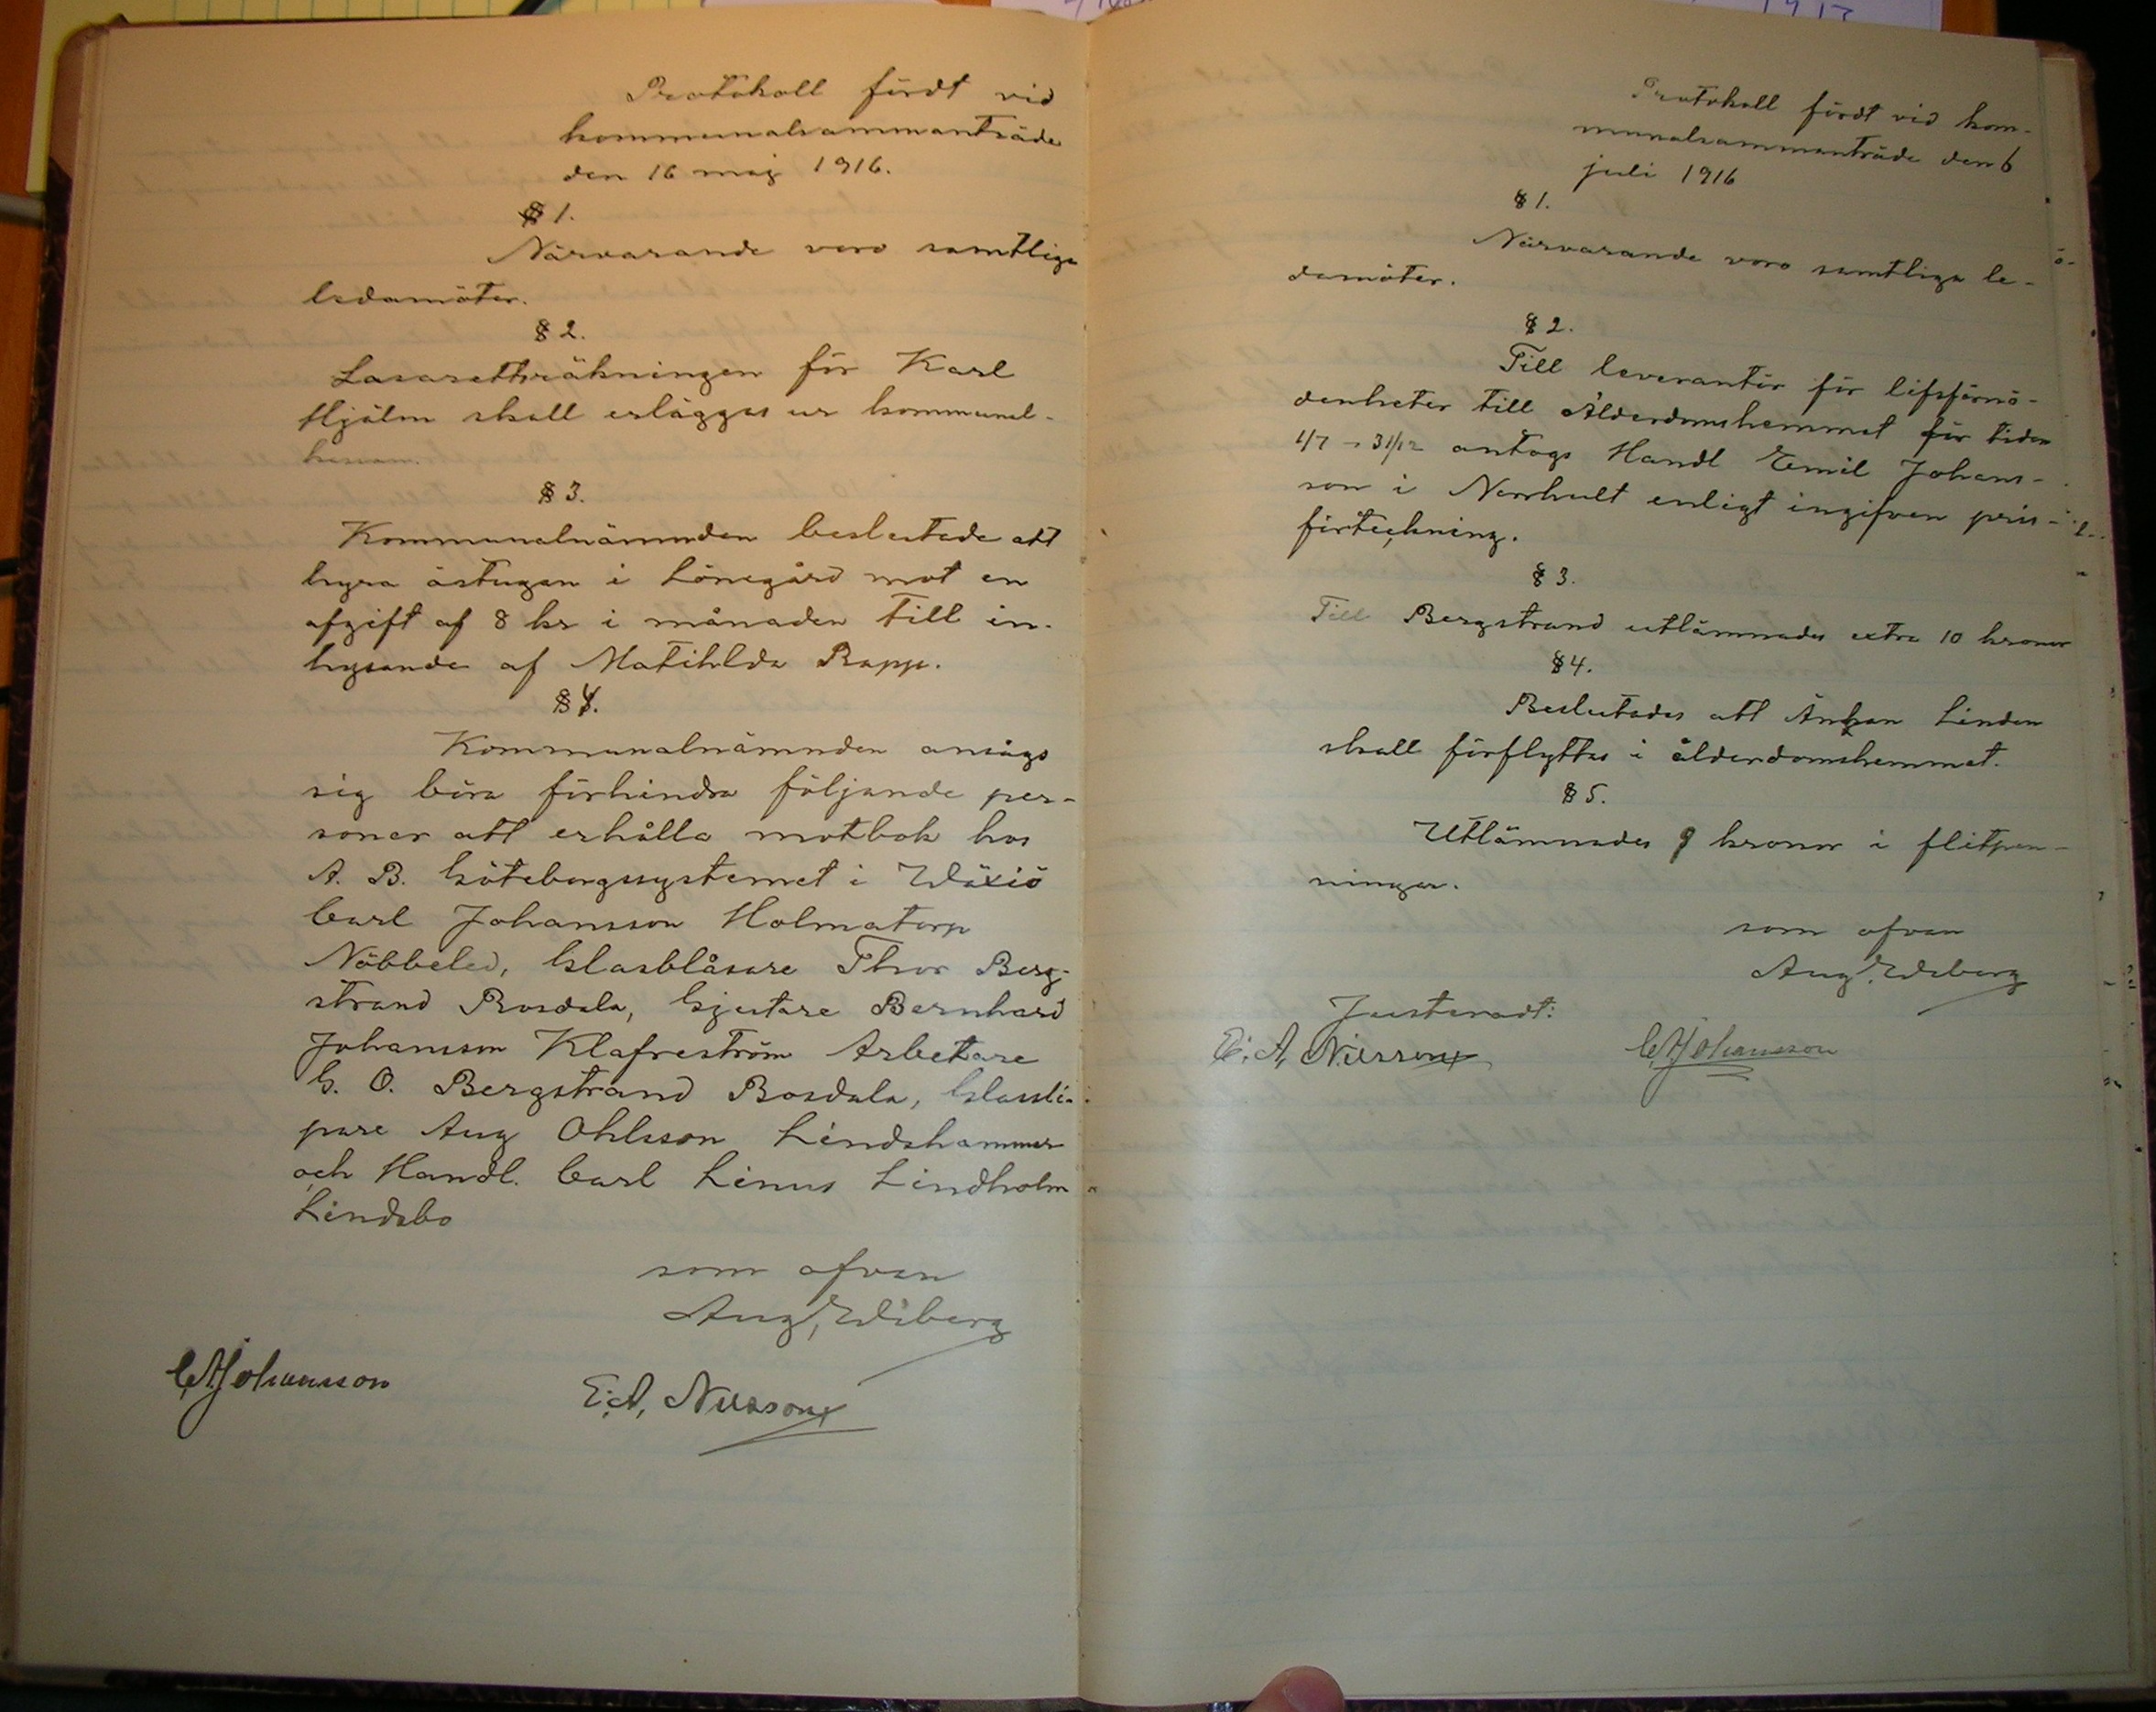 Protokoll fördt vid
kommunalsammanträde
den 16 maj 1916.
§ 1.
Närvarande voro samtliga
ledamöter.
§ 2.
Lasarettsräkningen för Karl
Hjälm skall erläggas ur kommunal-
kassan.
§ 3.
Kommunalnämnden beslutade att
hyra östugan i Lönegård mot en
afgift af 8 kr i månaden till in-
hysande af Mathilda Rapp.
§ 4.
Kommunalnämnden ansågs
sig böra förhindra följande per-
soner att erhålla motbok hos
A. B. Göteborgssystemet i Wäxiö
Carl Johansson Holmatorp
Nöbbeled, Glasblåsare Thor Berg-
strand Rosdala, Gjutare Bernhard
Johansson Klafreström Arbetare
G. O. Bergstrand Rosdala, Glassli-
pare Aug Ohlsson Lindshammar
och Handl. Carl Linus Lindholm
Lindsbo
som ofvan
Aug, Wiberg
C.A Johansson
E. A, Nilsson
Protokoll fördt vid kom-
munalsammanträde den 6
juli 1916
§ 1.
Närvarande voro samtliga le-
damöter.
§ 2.
Till leverantör för lifsförnö-
denheter till Ålderdomshemmet för tiden
1/7 - 31/12 antogs Handl Emil Johans-
son i Norrhult enligt ingifven pris-
förteckning.
§ 3.
Till Bergstrand utlämnades extra 10 kronor
§ 4.
Beslutades att Änkan Linden
skall förflyttas i ålderdomshemmet.
§ 5.
Utlämnades 9 kronor i flitpen-
ningar.
som ofvan
Aug. Wiberg
Justeradt:
E. A, Nilsson
C.A Johansson